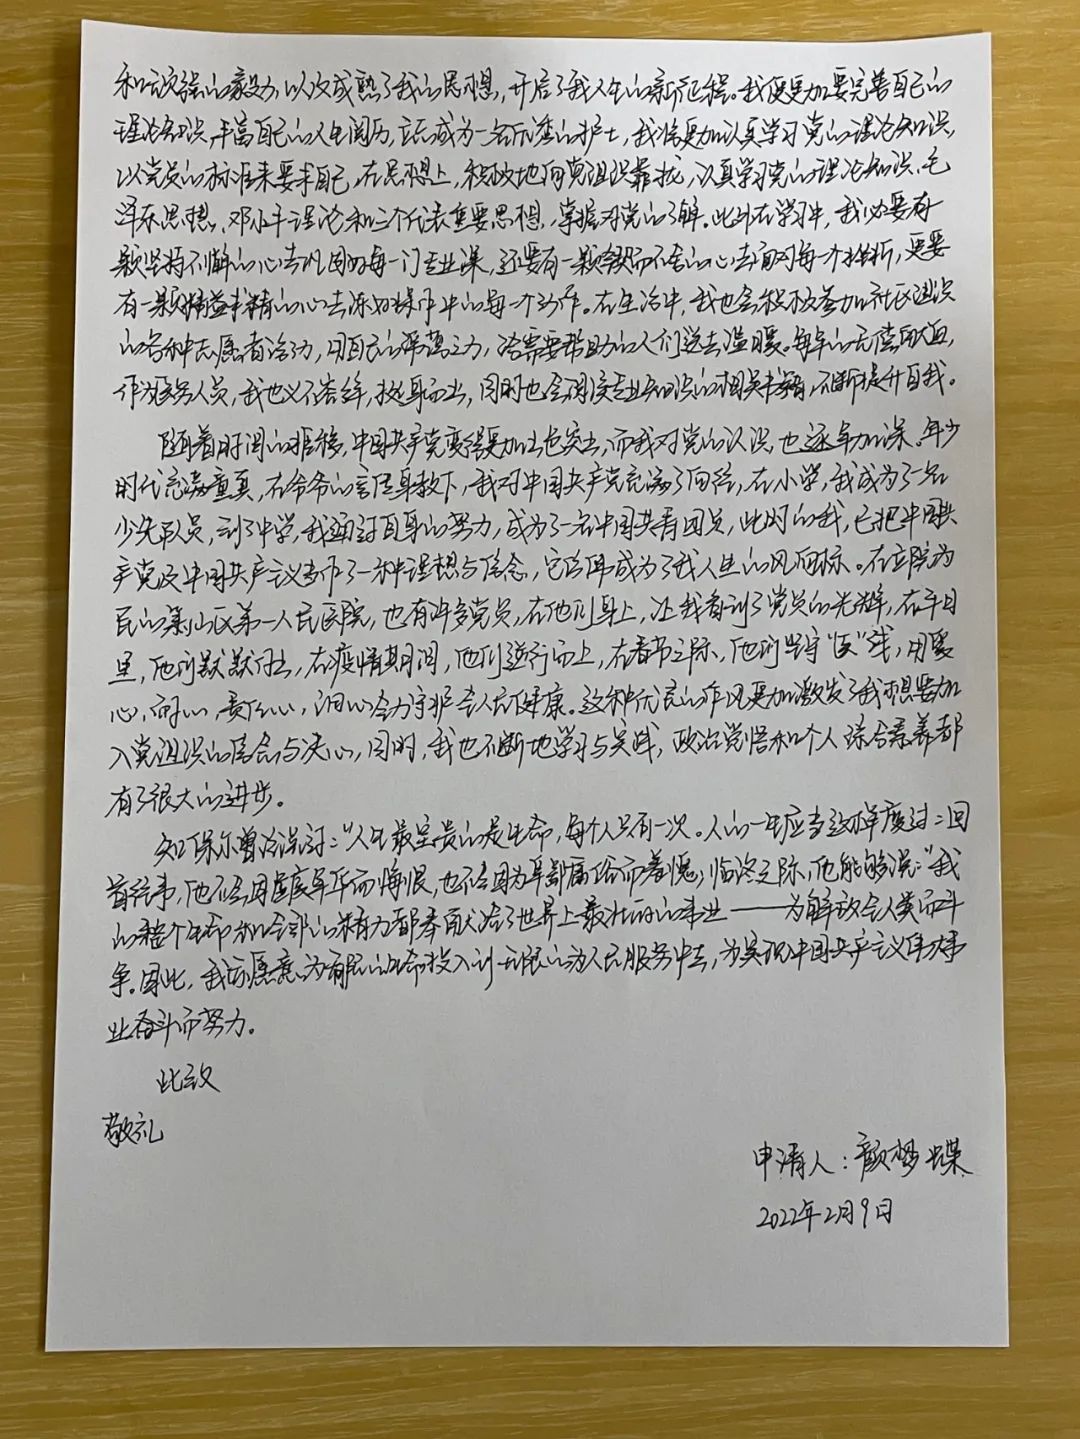 和顽强的毅力,以及成熟了我的思想,开启了我人生的新征程。我便更加要完善自己的
理论知识,丰富自己的人生阅历,立志成为一名优秀的护士,我将更加认真学习党的理论知识,
以党员的标准来要求自己。在思想上,积极地向党组织靠拢,认真学习党的理论知识、毛
泽东思想,邓小平理论和三个代表重要思想,掌握对党的了解。此外在学习中,我必要有
颗坚持不懈的心去巩固好每一门专业课,还要有一颗锲而不舍的心去面对每个挫折,更要
有一颗精益求精的心去练好操作中的每一个动作。在生活中,我也会积极参加社区组织
的各种志愿者活动,用自己的绵薄之力,给需要帮助的人们送去温暖。每年的无偿献血,
作为医务人员,我也义不容辞,挺身而出,同时也会阅读专业知识的相关书籍,不断提升自我。
随着时间的推移,中国共产党变得更加出色突出,而我对党的认识也逐年加深。年少
时代充满童真,在爷爷的言传身教下,我对中国共产党充满了向往,在小学,我成为了一名
少先队员,到了中学,我通过自身的努力,成为了一名中国共青团员,此时的我,已把中国共
产党及中国共产主义当作了一种理想与信念,它仿佛成为了我人生的风向标。在立院为
民的梁山区第一人民医院,也有许多党员,在他们身上,让我看到了党员的光辉,在平日
里,他们默默付出,在疫情期间,他们逆行而上,在春节之际,他们坚守“医”线,用爱
心,耐心,责任心,细心全力守护全人民健康。这种优良的作风更加激发了我想要加
入党组织的信念与决心,同时,我也不断地学习与实践,政治觉悟和个人综合素养都
有了很大的进步。
如保尔曾经说过:“人最宝贵的是生命,每个人只有一次。人的一生应当这样度过:回
首往事,他不会因虚度年华而悔恨,也不会因为卑鄙庸俗而羞愧;临终之际,他能够说:“我
的整个生命和全部的精力都奉献给了世界上最壮丽的事业——为解放全人类而斗
争。因此,我愿意为有限的生命投入到无限的为人民服务中去,为实现中国共产主义伟大事
业奋斗而努力。
此致
敬礼
申请人:颜梦蝶
2022年2月9日